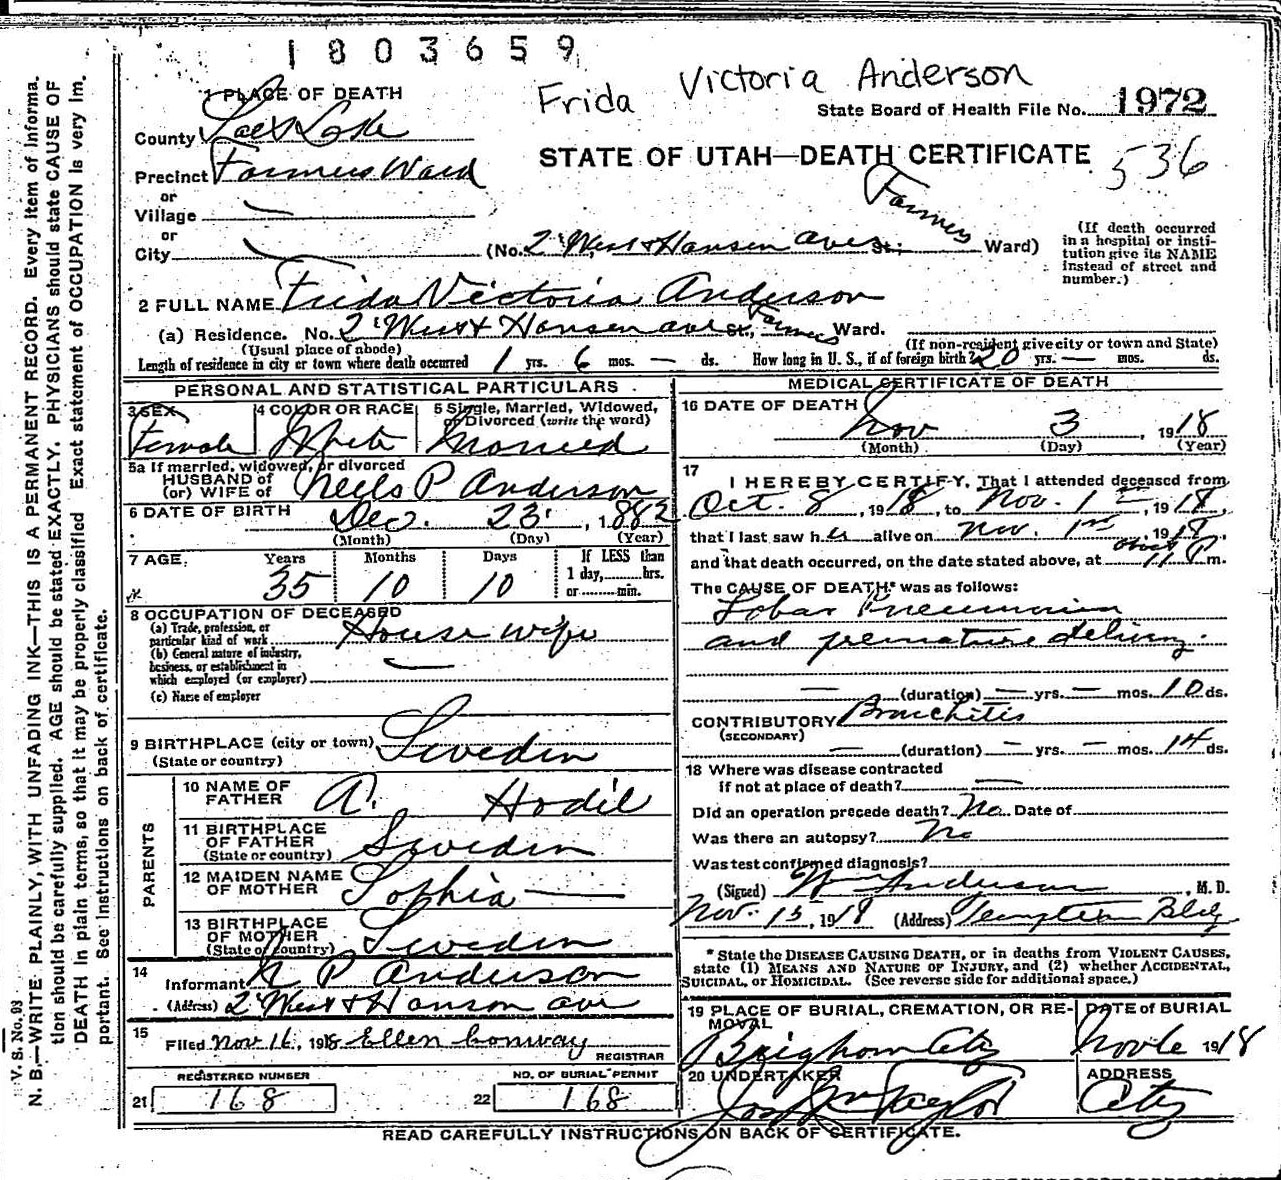 1803659
Frida Victoria Anderson
State Board of Health File No. 1972
536
STATE OF UTAH—DEATH CERTIFICATE
1 PLACE OF DEATH
County Salt Lake
Precinct Farmers Ward
or
Village —
or
City — (No. 2nd West & Hansen ave St.; Farmers Ward)
(If death occurred in a hospital or insti-
tution give its NAME instead of street and number.)
2 FULL NAME Frida Victoria Anderson
(a) Residence. No. 2nd West & Hansen ave St., Farmers Ward.
(Usual place of abode) (If non-resident give city or town and State)
Length of residence in city or town where death occurred 1 yrs. 6 mos. — ds. How long in U. S., if of foreign birth? 20 yrs. — mos. ds.
PERSONAL AND STATISTICAL PARTICULARS
3 SEX Female
4 COLOR OR RACE White
5 Single, Married, Widowed, or Divorced (write the word) Married
5a If married, widowed, or divorced
HUSBAND of
(or) WIFE of Neels P Anderson
6 DATE OF BIRTH Dec. 23, 1882
(Month) (Day) (Year)
7 AGE Years 35 Months 10 Days 10
If LESS than
1 day,........hrs.
or ........min.
8 OCCUPATION OF DECEASED
(a) Trade, profession, or
particular kind of work House wife
(b) General nature of industry,
business, or establishment in
which employed (or employer) —
(c) Name of employer
9 BIRTHPLACE (city or town)
(State or country) Sweden
PARENTS
10 NAME OF FATHER A. Hodil
11 BIRTHPLACE OF FATHER
(State or country) Sweden
12 MAIDEN NAME OF MOTHER Sophia —
13 BIRTHPLACE OF MOTHER
(State or country) Sweden
14
Informant N P Anderson
(Address) 2nd West & Hanson ave
15
Filed Nov 16, 1918 Ellen Conway
REGISTRAR
REGISTERED NUMBER
21 168
NO. OF BURIAL PERMIT
22 168
MEDICAL CERTIFICATE OF DEATH
16 DATE OF DEATH
Nov 3, 1918
(Month) (Day) (Year)
17
I HEREBY CERTIFY, That I attended deceased from
Oct. 8, 1918, to Nov. 1st, 1918,
that I last saw her alive on Nov. 1st, 1918,
and that death occurred, on the date stated above, at about 11 P m.
The CAUSE OF DEATH* was as follows:
Lobar Pneumonia
and premature delivery.
— (duration) — yrs. — mos. 10 ds.
CONTRIBUTORY Bronchitis
(SECONDARY)
— (duration) — yrs. — mos. 14 ds.
18 Where was disease contracted
if not at place of death? —
Did an operation precede death? No Date of
Was there an autopsy? No
Was test confirmed diagnosis?
(Signed) Wm Anderson, M. D.
Nov. 15, 1918 (Address) Templeton Bldg
*State the DISEASE CAUSING DEATH, or in deaths from VIOLENT CAUSES,
state (1) MEANS AND NATURE OF INJURY, and (2) whether ACCIDENTAL,
SUICIDAL, or HOMICIDAL. (See reverse side for additional space.)
19 PLACE OF BURIAL, CREMATION, OR RE-
MOVAL
Brigham City
DATE of BURIAL
Nov 6 1918
20 UNDERTAKER
Jos Wm Taylor
ADDRESS
City
READ CAREFULLY INSTRUCTIONS ON BACK OF CERTIFICATE.
V. S. No. 93
N. B.—WRITE PLAINLY, WITH UNFADING INK—THIS IS A PERMANENT RECORD. Every item of informa-
tion should be carefully supplied. AGE should be stated EXACTLY. PHYSICIANS should state CAUSE OF
DEATH in plain terms, so that it may be properly classified. Exact statement of OCCUPATION is very im-
portant. See instructions on back of certificate.